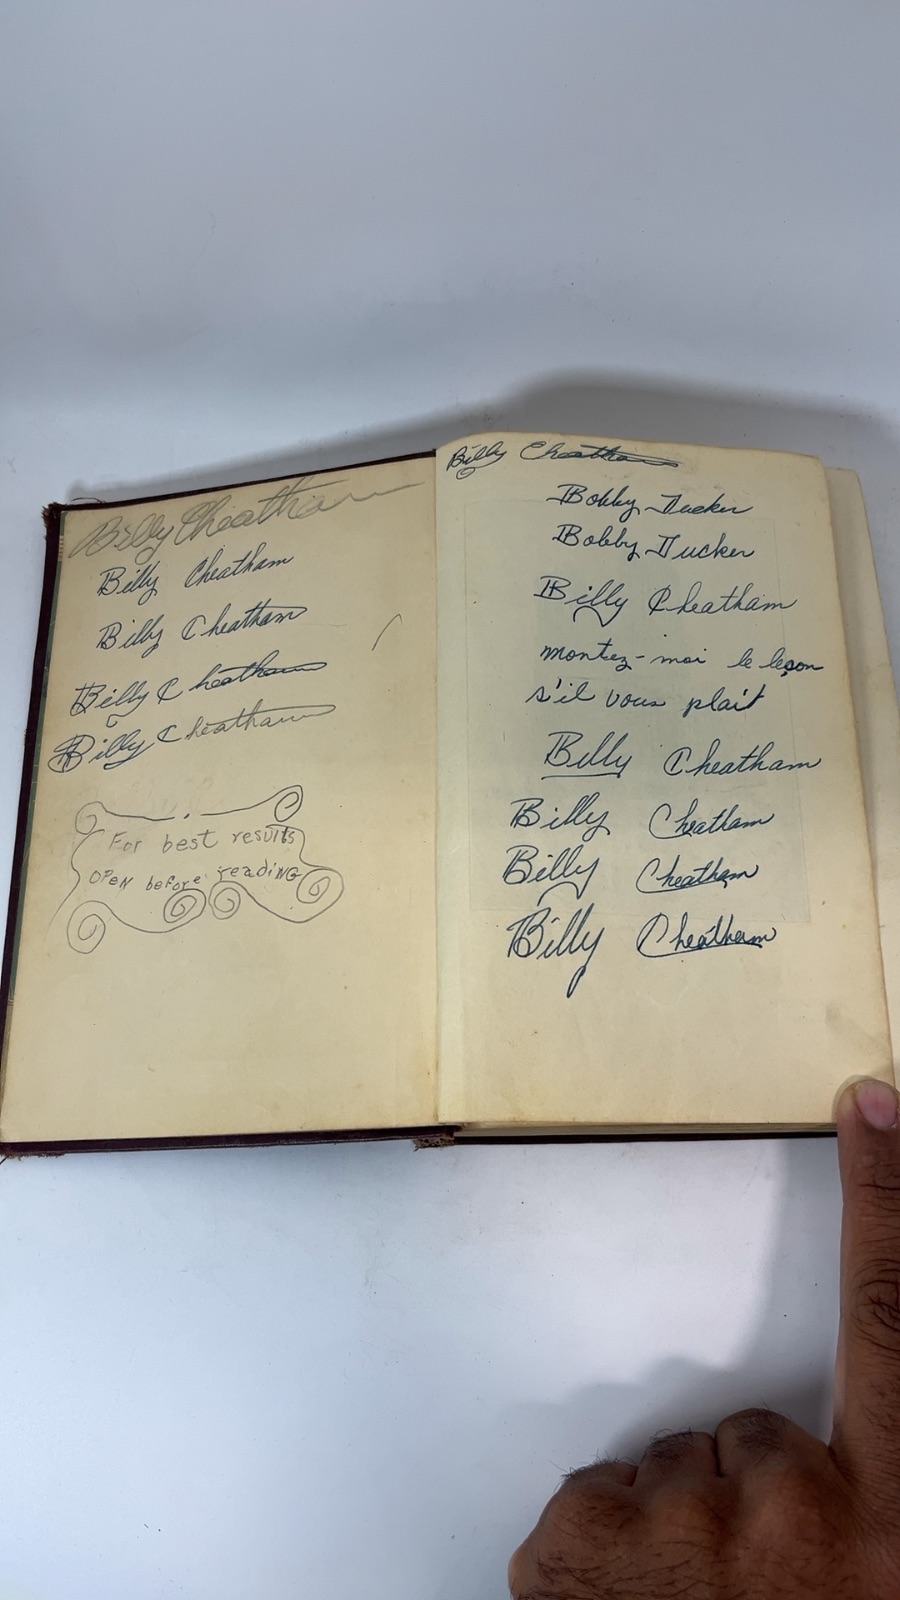 Billy Cheatham
Billy Cheatham
Billy Cheatham
Billy Cheatham
Billy Cheatham
For best results
OPEN before reading
Billy Cheatham
Bobby Tucker
Bobby Tucker
Billy Cheatham
montez-moi le leçon
s'il vous plaît
Billy Cheatham
Billy Cheatham
Billy Cheatham
Billy Cheatham